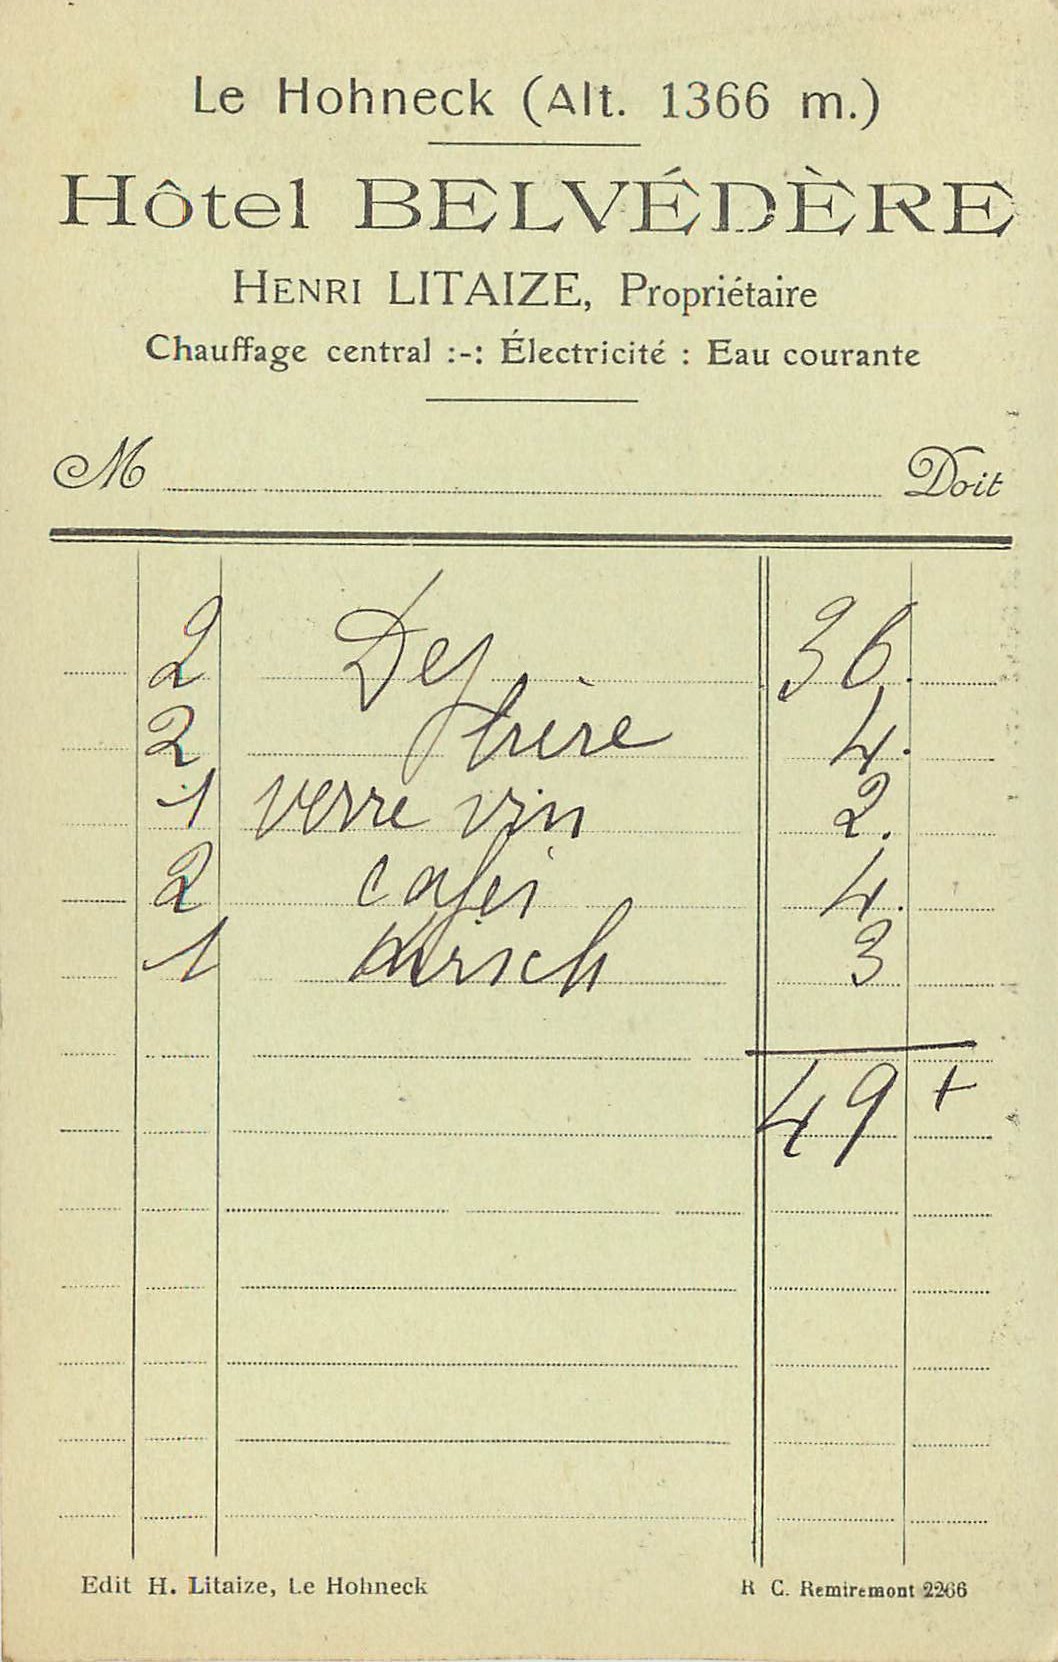 Le Hohneck (Alt. 1366 m.)
Hôtel BELVÉDÈRE
HENRI LITAIZE, Propriétaire
Chauffage central :-: Électricité : Eau courante
M Doit
2 Dej 36.
2 bière 4.
1 verre vin 2.
2 cafés 4.
1 Kirsch 3
49 +
Edit H. Litaize, Le Hohneck
R C. Remiremont 2266